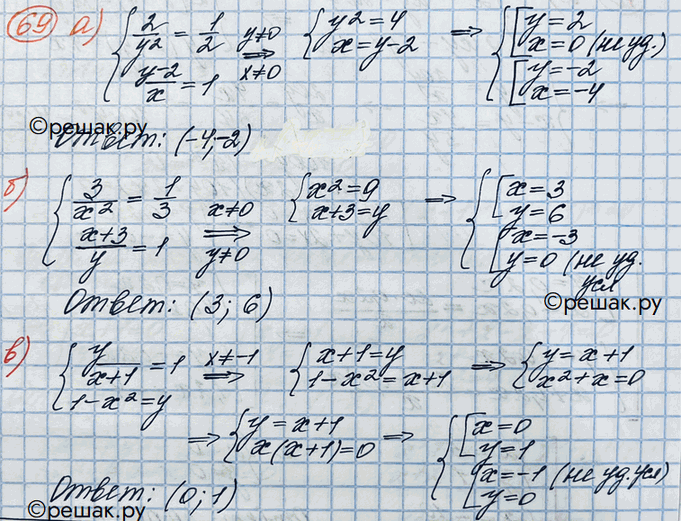 69 а) { 2/y² = 1/2 y≠0 ⇒ x≠0 { y² = 4 ⇒ { [ y = 2
(y-2)/x = 1 x = y-2 x = 0 (не уд.)
[ y = -2
x = -4
©решак.ру
Ответ: (-4;-2)
б) { 3/x² = 1/3 x≠0 ⇒ y≠0 { x² = 9 ⇒ { [ x = 3
(x+3)/y = 1 x+3 = y y = 6
[ x = -3
y = 0 (не уд. усл
Ответ: (3; 6)
©решак.ру
в) { y/(x+1) = 1 x≠-1 ⇒ { x+1 = y ⇒ { y = x+1
1-x² = y 1-x² = x+1 x²+x = 0
⇒ { y = x+1 ⇒ { [ x = 0
x(x+1) = 0 y = 1
[ x = -1 (не уд. усл)
y = 0
Ответ: (0; 1)
©решак.ру